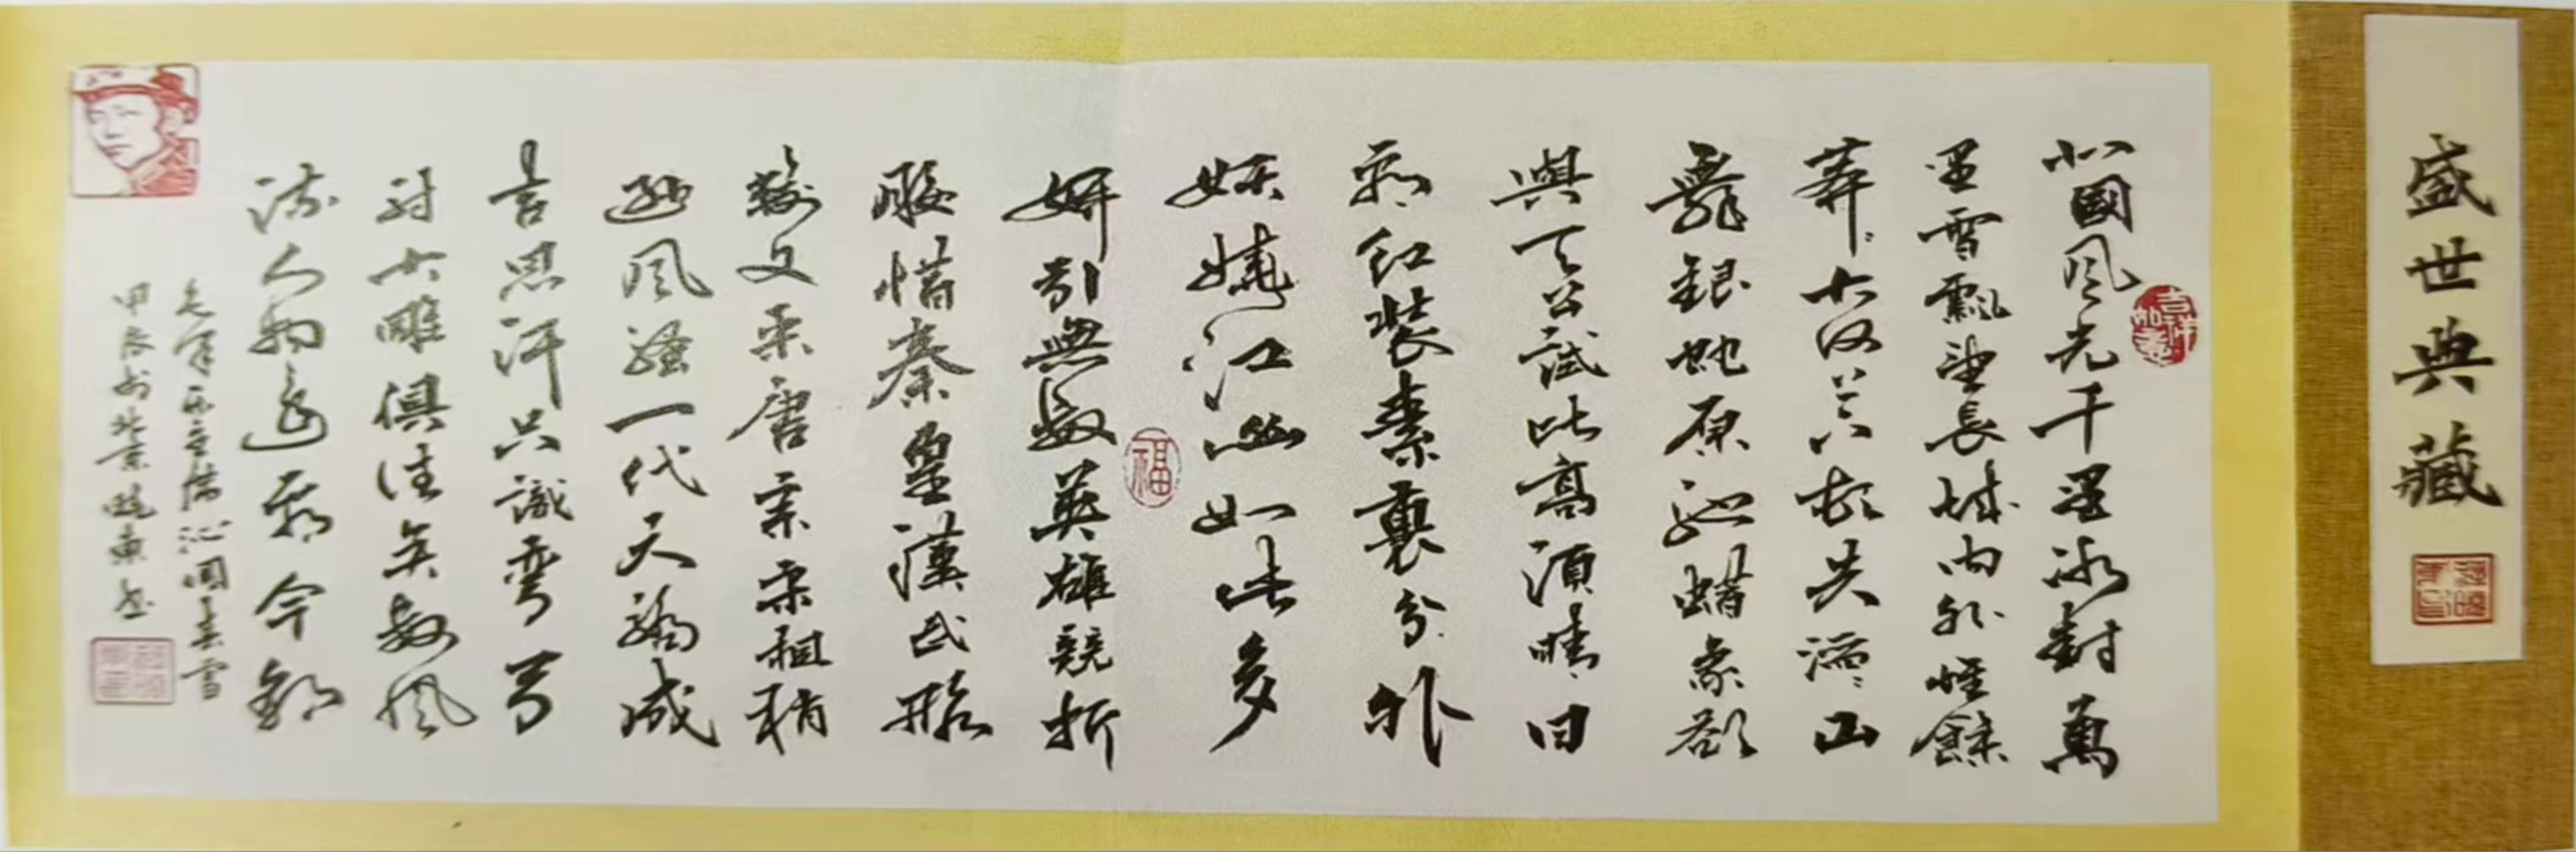 盛世典藏
吉祥如意
北國风光千里冰封萬
里雪飄望長城内外惟餘
莽〻大河上下頓失滔〻山
舞銀蛇原馳蜡象欲
與天公試比高須晴日
看红裝素裹分外
妖嬈江山如此多
嬌引無數英雄競折
福
腰惜秦皇漢武略
輸文采唐宗宋祖稍
遜风騷一代天驕成
吉思汗只識彎弓
射大雕俱往矣數风
流人物還看今朝
毛澤东主席沁園春雪
甲辰於北京曉東書